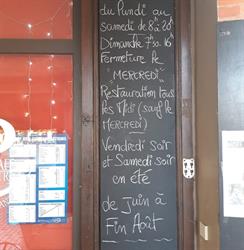 du lundi au
samedi de 8h à 20h
Dimanche 7h30. 16h
Fermeture le
"MERCREDI"
Restauration tous
les Midi (sauf le
MERCREDI)
Vendredi Soir
et Samedi soir
en été
de Juin à
Fin Août